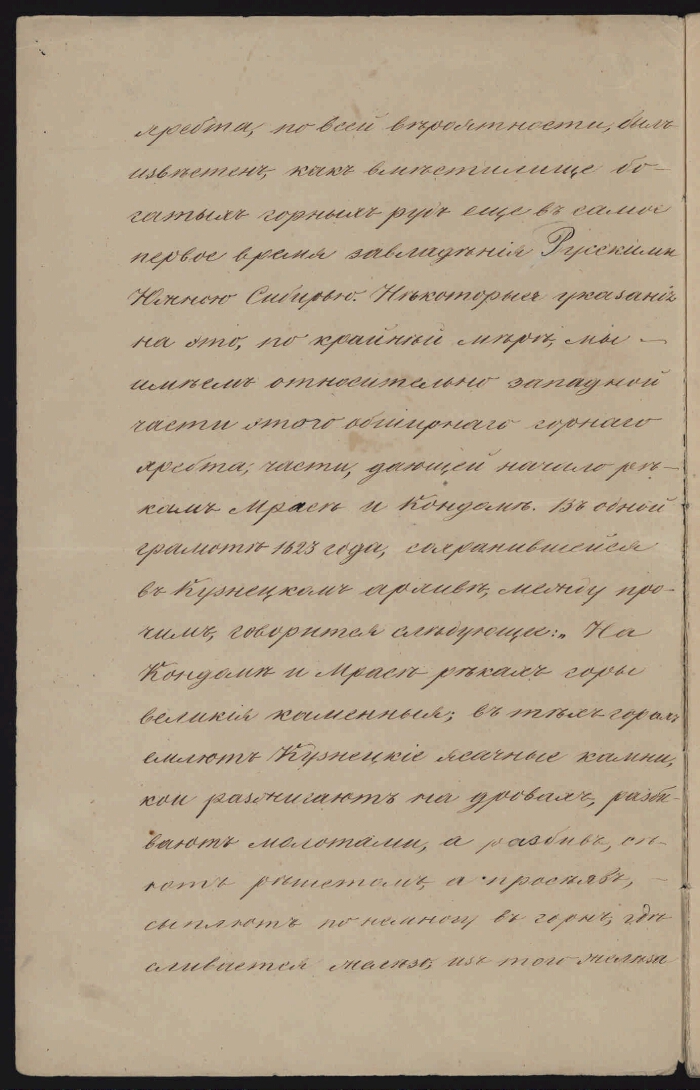 хребта, по всей вѣроятности, былъ
извѣстенъ, какъ вмѣстилище бо-
гатыхъ горныхъ рудъ еще въ самое
первое время завладѣнія Русскими
Южною Сибирью. Нѣкоторыя указанія
на это, по крайнѣй мѣрѣ, мы —
имѣемъ относительно западной
части этого обширнаго горнаго
хребта, части, дающей начало рѣ-
камъ Мрасѣ и Кондомѣ. Въ одной
грамотѣ 1623 года, сохранившейся
въ Кузнецкомъ архивѣ, между про-
чимъ, говорится слѣдующее: „На
Кондомѣ и Мрасѣ рѣкахъ горы
великія каменныя; въ тѣхъ горахъ
емлютъ Кузнецкіе ясачные камни,
кои разжигаютъ на дровахъ, разби-
ваютъ молотами, а разбивъ, сѣ-
ютъ рѣшетомъ, а просѣявъ, —
сыплютъ по немногу въ горнъ, гдѣ
сливается желѣзо, изъ того желѣза